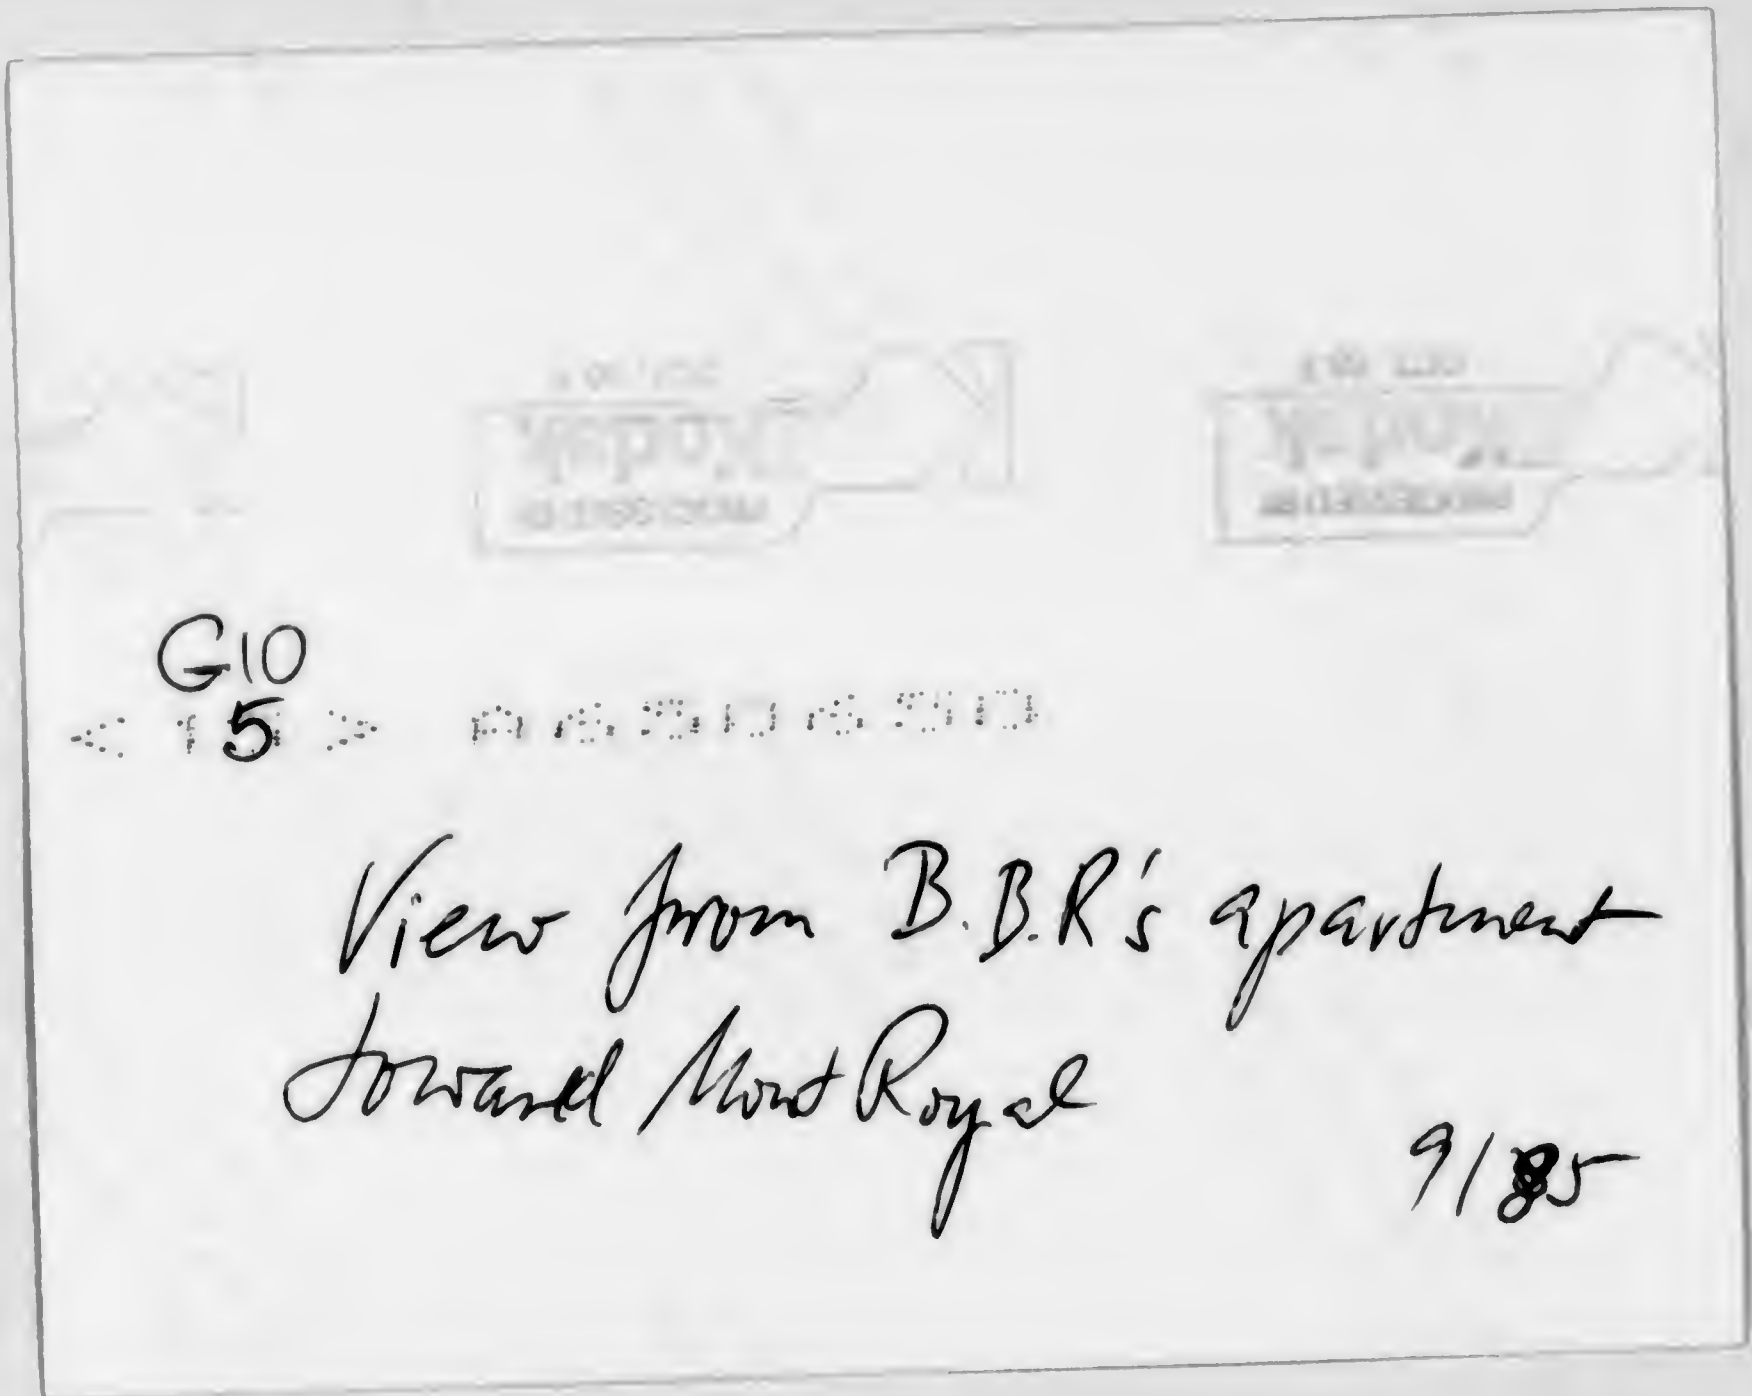 Kodak
Kodak
G10
5
View from B.B.R's apartment
toward Mont Royal
9/85